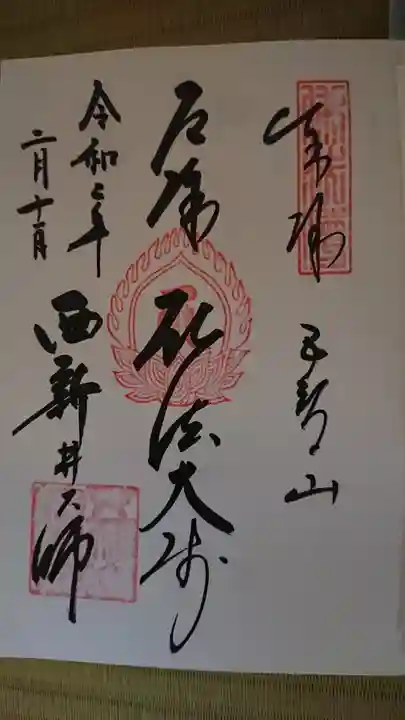 奉拝
五智山
厄除
弘法大師
令和二年
二月十一日
西新井大師